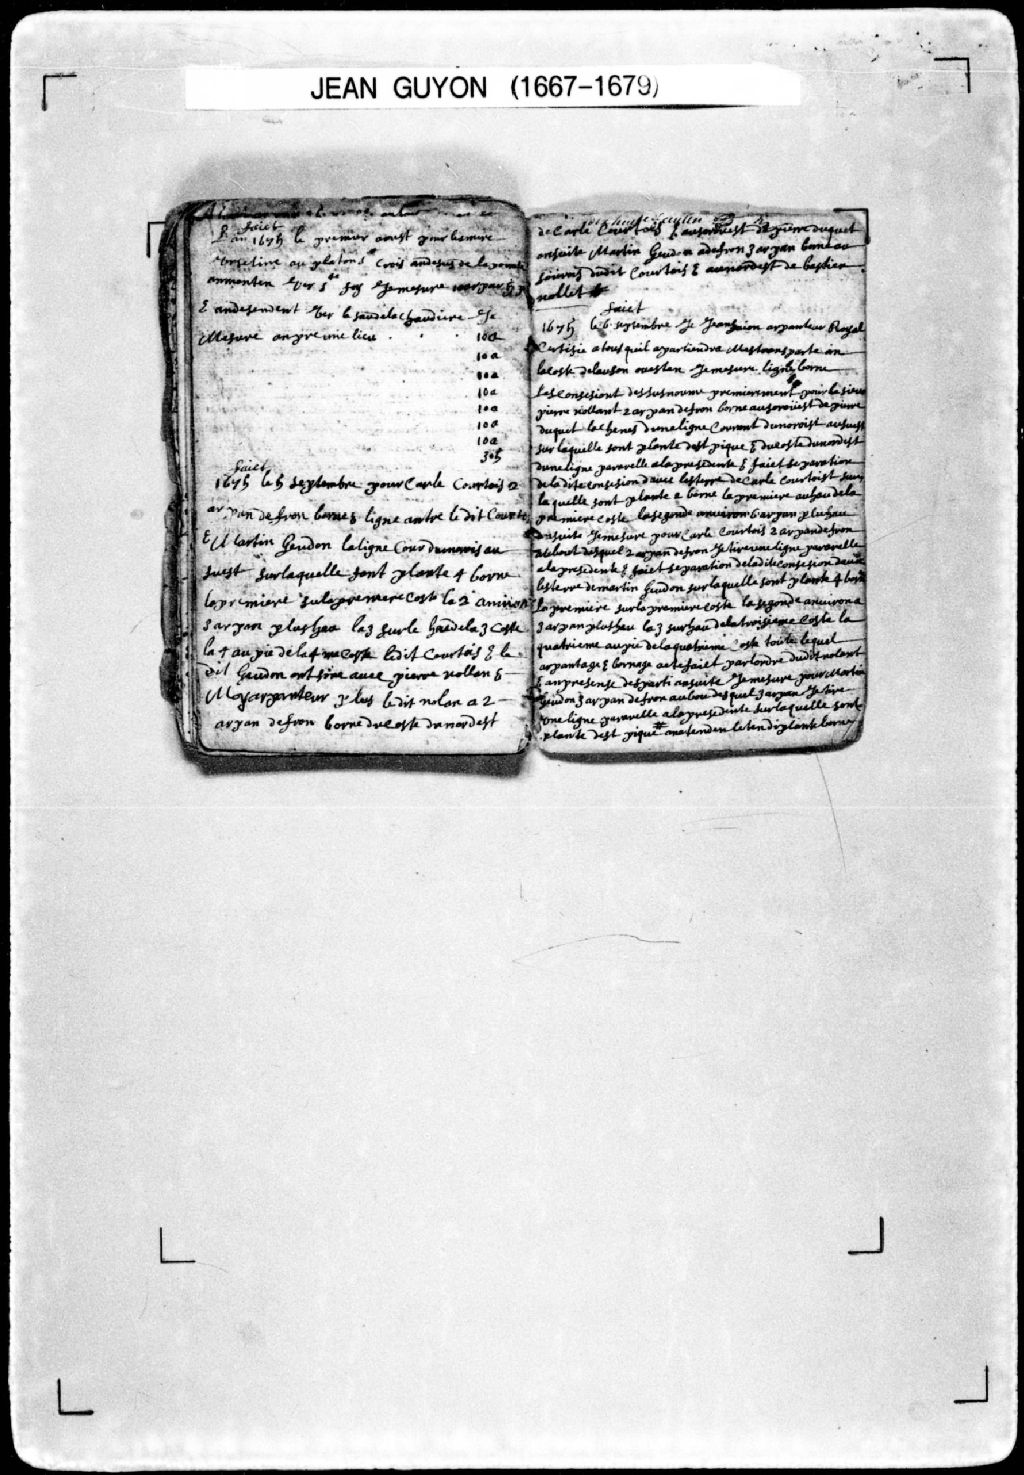 JEAN GUYON (1667-1679)
faict
an 1675 le premier aoust pour
anmonten ver Je mesure
& andesendent ver le saudelachaudiere
Mesure anpreune lieu
10a
10a
10a
10a
10a
10a
10a
faict
1675 le 5 septembre pour Carle Courtois 2
arpan de fron borne & ligne antre le dit Courtois
& Martin Geudon la ligne Cour dunorois au
suest sur laquelle sont plante 4 borne
la premiere sula premiere Coste la 2 anviron
3 arpan plus hau la 3 sur le hau de la 3 Coste
la 4 au pie de la 4me Coste ledit Courtois & le
dit Geudon ont sine avec pierre nollan &
Moy arpanteur plus le dit nolan a 2
arpan de fron borne du coste du nordest
de Carle Courtois & au sorouest de pierre duquet
ansuite Martin Geudon a de fron 3 arpan borne au
dudit Courtois & au nordest de bastien
nollet
faict
1675 le 6 septembre Je Jean Guion arpanteur Royal
Certifie a tous quil apartiendra Mes transporte an
la coste de lauson ou estan Je mesure ligne borne
les Consesiont dessus nomme premierement pour le sieur
pierre nollant 2 arpan de fron borne au sorouest de pierre
duquet la chenes dune ligne Courant du noroist au suest
sur laquelle sont plante dest pique & du coste du nordest
dune ligne pararelle a la presedente & faict separation
de la dite consesion davec les terre de Carle Courtoist sur
la quelle sont plante 2 borne le premiere au hau de la
premiere coste la segonde anviron 6 arpan plu hau
ansuite Je mesure pour Carle Courtois 2 arpan de fron
au bout desquel 2 arpan de fron Je tire une ligne pararelle
a la presedente & faict separation de la dite consesion davec
les terre de martin Geudon sur laquelle sont plante 4 borne
la premiere sur la premiere coste la segonde anviron a
3 arpan plus hau la 3 sur hau de la troisieme Coste la
quatrieme au pie de la quatrieme Coste toute lequel
arpantage & bornage a ete faict par lordre dudit nolant
& an presense des parti ansuite Je mesure pour Martin
Geudon 3 arpan de fron au bou desquel 3 arpan Je tire
une ligne pararelle a la presedente sur laquelle sont
plante dest pique